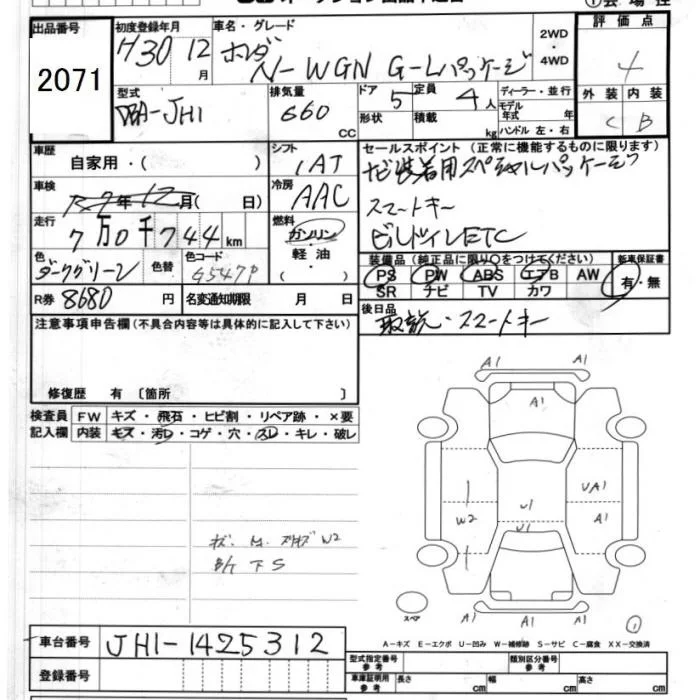 出品番号
2071
初度登録年月
H30 12月
車名・グレード
ホンダ
N-WGN G-Lパッケージ
2WD
・
4WD
評価点
4
外装 内装
C B
型式
DBA-JH1
排気量
660
CC
ドア 5
定員 4人
形状
積載 kg
ディーラー・並行
モデル年式 年
ハンドル 左・右
車歴
自家用・( )
シフト
IAT
車検
年12月( 日)
冷房
AAC
走行
7万0千744km
燃料
ガソリン
軽油
( )
色
ダークグリーン
色替
色コード
G547P
R券 8680円
名変通知期限 月 日
セールスポイント(正常に機能するものに限ります)
ナビ装着用スペシャルパッケージ
スマートキー
ビルトインETC
装備品(純正品に限り○をつけてください)
PS PW ABS エアB AW
SR ナビ TV カワ
新車保証書
有・無
後日品
取説・スマートキー
注意事項申告欄(不具合内容等は具体的に記入して下さい)
修復歴 有〔箇所 〕
検査員
記入欄
FW キズ・飛石・ヒビ割・リペア跡・×要
内装 キズ・汚レ・コゲ・穴・スレ・キレ・破レ
W2
下S
A1 A1
A1
UA1
W2
U1
A1
U1
A1 A1 A1
スペア
1
A−キズ E−エクボ U−凹み W−補修跡 S−サビ C−腐食 XX−交換済
車台番号
JH1-1425312
登録番号
型式指定番号
参考
類別区分番号
参考
車庫証明用
参考
長さ cm 幅 cm 高さ cm